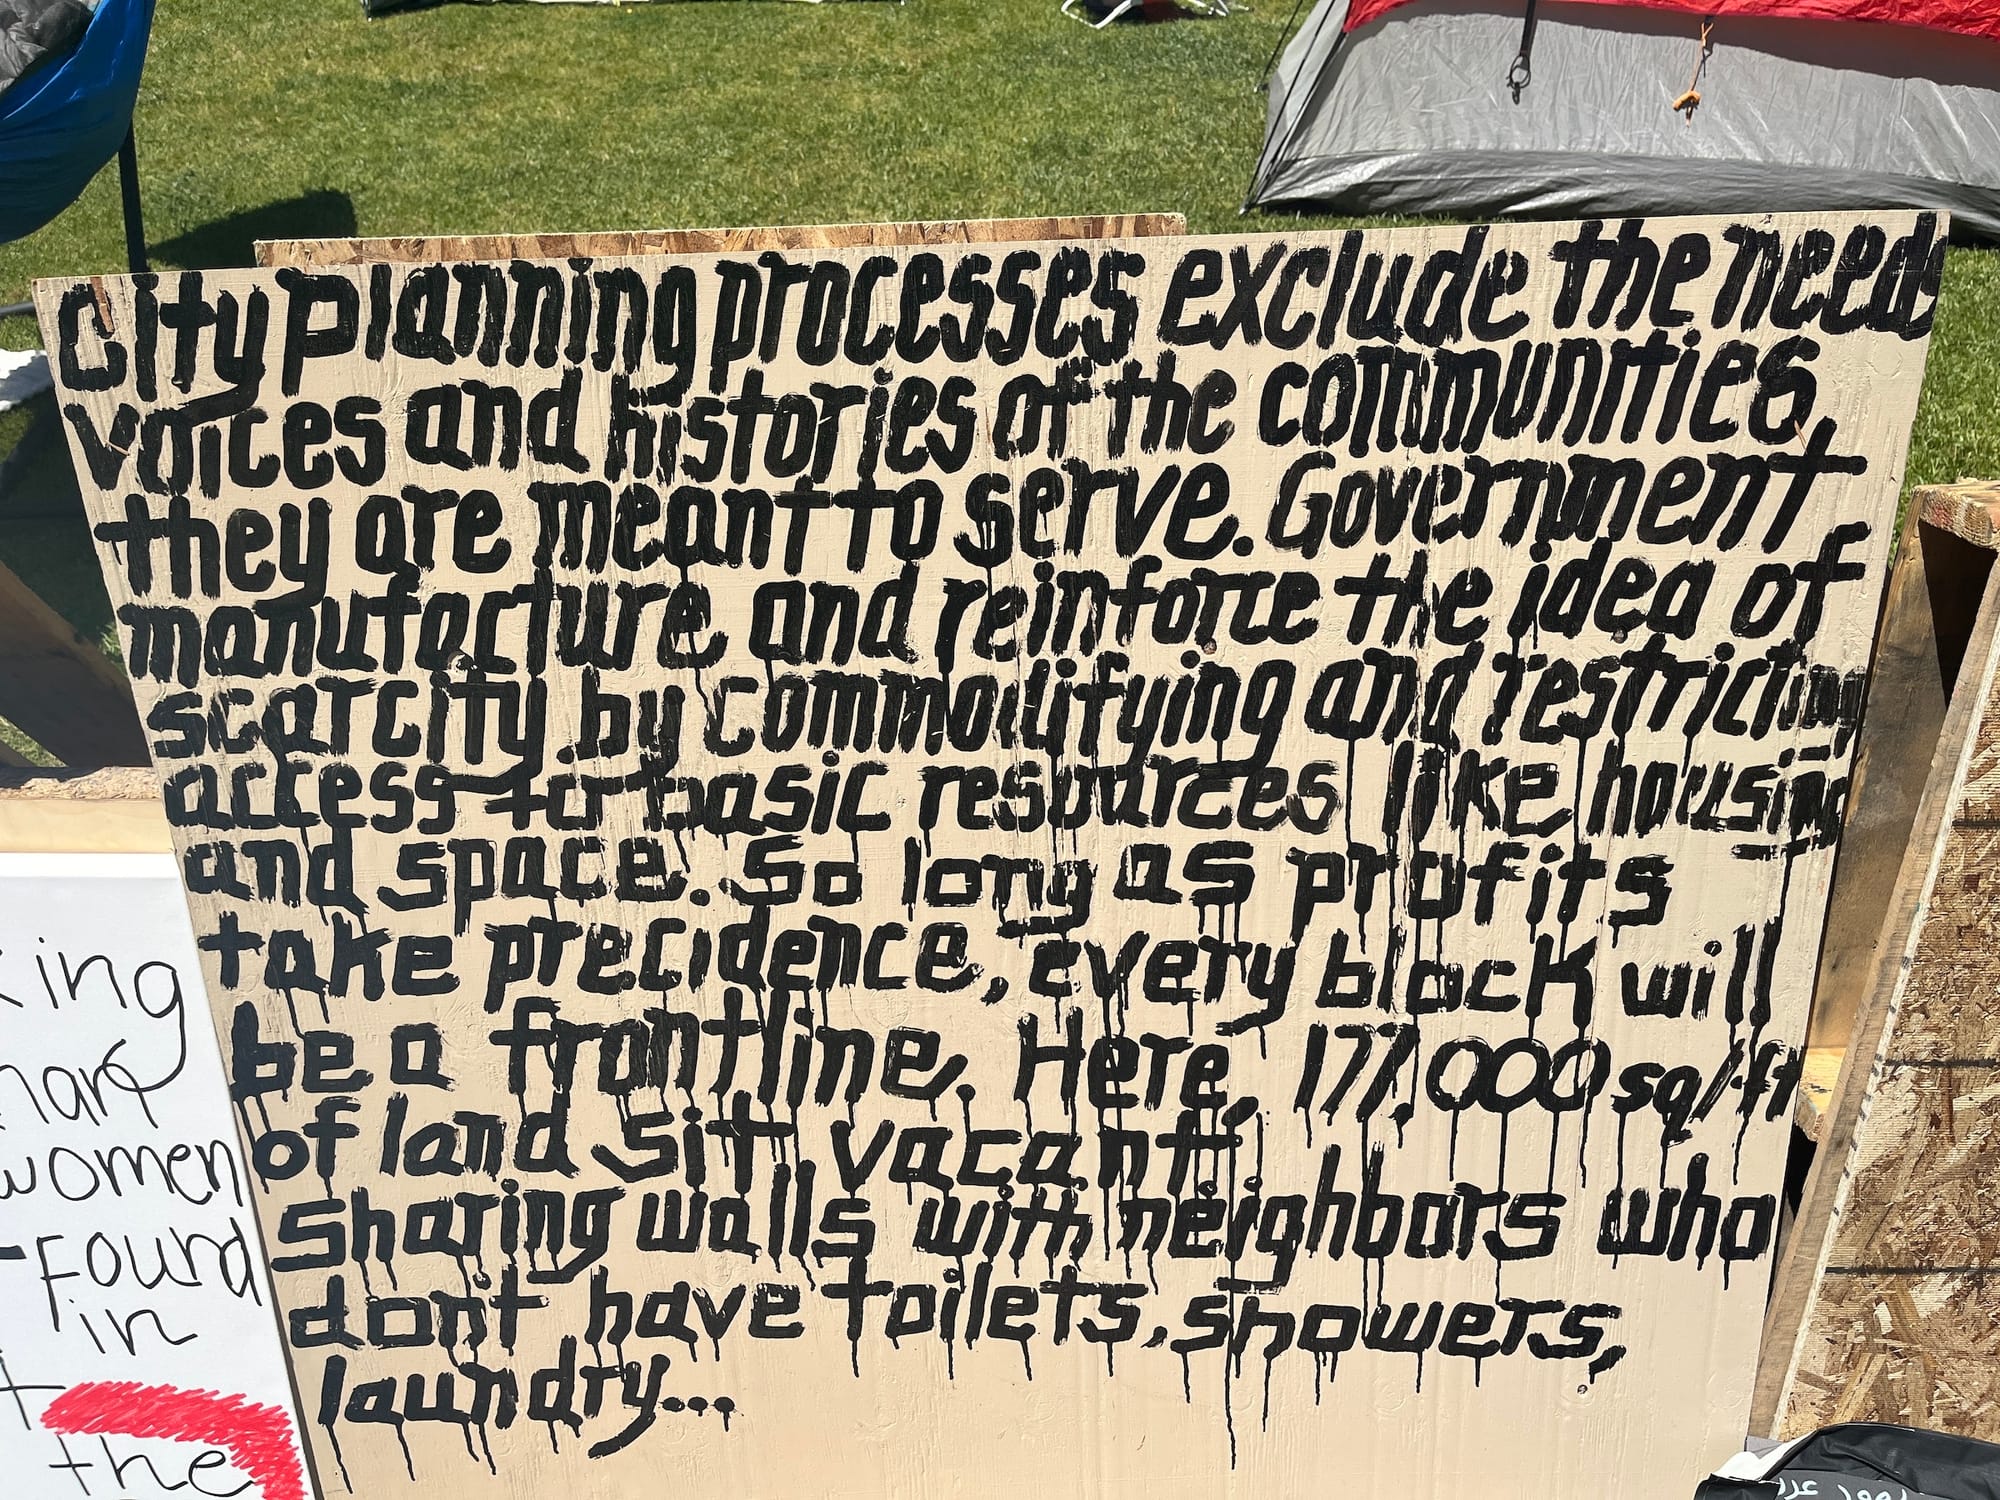 City planning processes exclude the needs
voices and histories of the communities,
they are meant to serve. Government
manufacture and reinforce the idea of
scarcity by commodifying and restricting
access to basic resources like housing
and space. So long as profits
take precidence, every block will
be a frontline. Here, 177,000 sq/ft
of land sit vacant,
sharing walls with neighbors who
don't have toilets, showers,
laundry...
king
women
Found
in
the